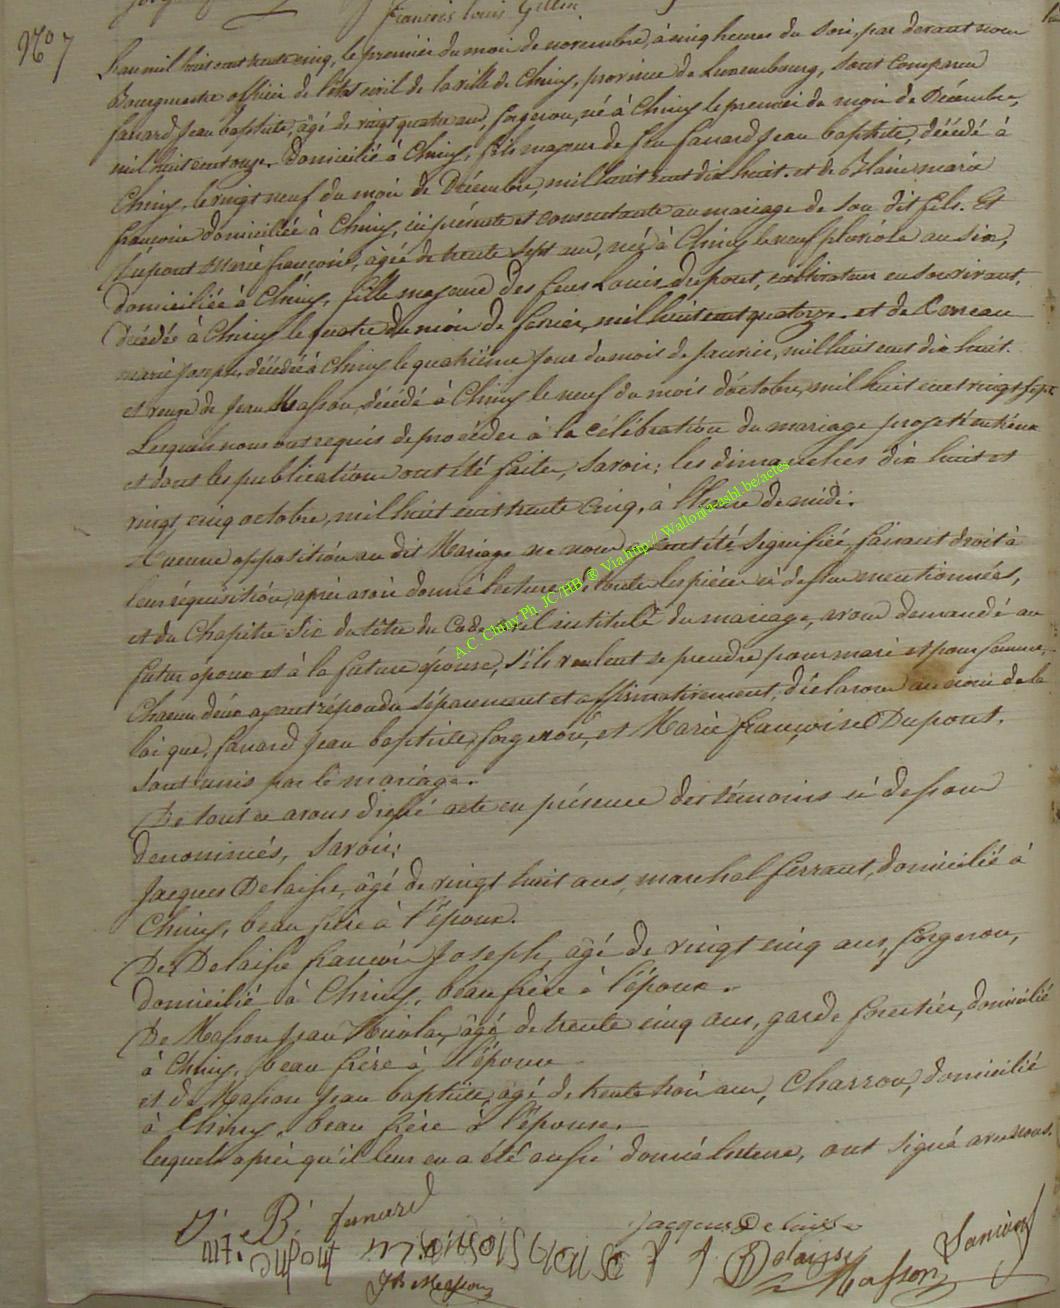 François Louis Gillin
N° 7
L'an mil huit cent trente cinq, le premier du moi de novembre, à cinq heures du soir, par devant nous
Bourgmestre officier de l'état civil de la ville de Chiny, province de Luxembourg, sont comparu
fanard Jean baptiste, âgé de vingt quatre ans, forgeron, né à Chiny le premier du moi de Décembre,
mil huit cent onze, domicilié à Chiny, fils majeur de feu fanard Jean baptiste, décédé à
Chiny, le vingt neuf du moi de Décembre mil huit cent dix huit. et de marie
francoise domiciliée à Chiny, ici présente et consentante au mariage de son dit fils. Et
Dupont Marie françoise, âgée de trente sept ans, née à Chiny le neuf pluviôse an six,
domiciliée à Chiny, fille majeure des feus Louis Dupont, cultivateur en son vivant,
décédé à Chiny le quatre du moi de février mil huit cent quatorze. et de
marie Joseph, décédée à Chiny le quatrième jour du mois de janvier, mil huit cent dix huit.
et veuve de Jean Masson, décédé à Chiny le neuf du mois d'octobre, mil huit cent vingt sept
Lesquels nous ont requis de procéder à la célébration du mariage projeté entr'eux
et dont les publication ont été faites, savoir; les dimanches dix huit et
vingt cinq octobre, mil huit cent trente cinq, à l'heure de midi.
Aucune opposition au dit Mariage ne nous ayant été signifiée, faisant droit à
leur réquisition, après avoir donné lecture de toute les pièces ci dessus mentionnées,
et du Chapitre Six du titre du Code civil intitulé du mariage, avons demandé au
futur époux et à la future épouse, s'ils veulent se prendre pour mari et pour femme,
Chacun d'eux ayant répondu séparement et affirmativement, déclarons au nom de la
loi que, fanard Jean baptiste, forgeron, et Marie françoise Dupont,
sont unis par le mariage.
De tout ce avons dressé acte en présence des témoins ci dessous
denommés, savoir;
Jacques Delaisse, âgé de vingt huit ans, marchal ferrant, domicilié à
Chiny, beau frère à l'époux.
De Delaisse francois Joseph, âgé de vingt cinq ans, forgeron,
domicilié à Chiny, beau frère à l'époux.
De Masson Jean Nicolas, âgé de trente cinq ans, garde forestier, domicilié
à Chiny, beau frère à l'épouse
et de Masson Jean baptiste, âgé de trente trois ans, Charron, domicilié
à Chiny, beau frère à l'épouse.
lesquels après qu'il leur en a été aussi donné lecture, ont signé avec nous.
J. B. fanard
Jacques Delaisse
M. f. dupont
f. J. Delaisse
JB Masson
Masson
A.C. Chiny Ph. JC/HB ® Via http://Wallonia-asbl.be/actes